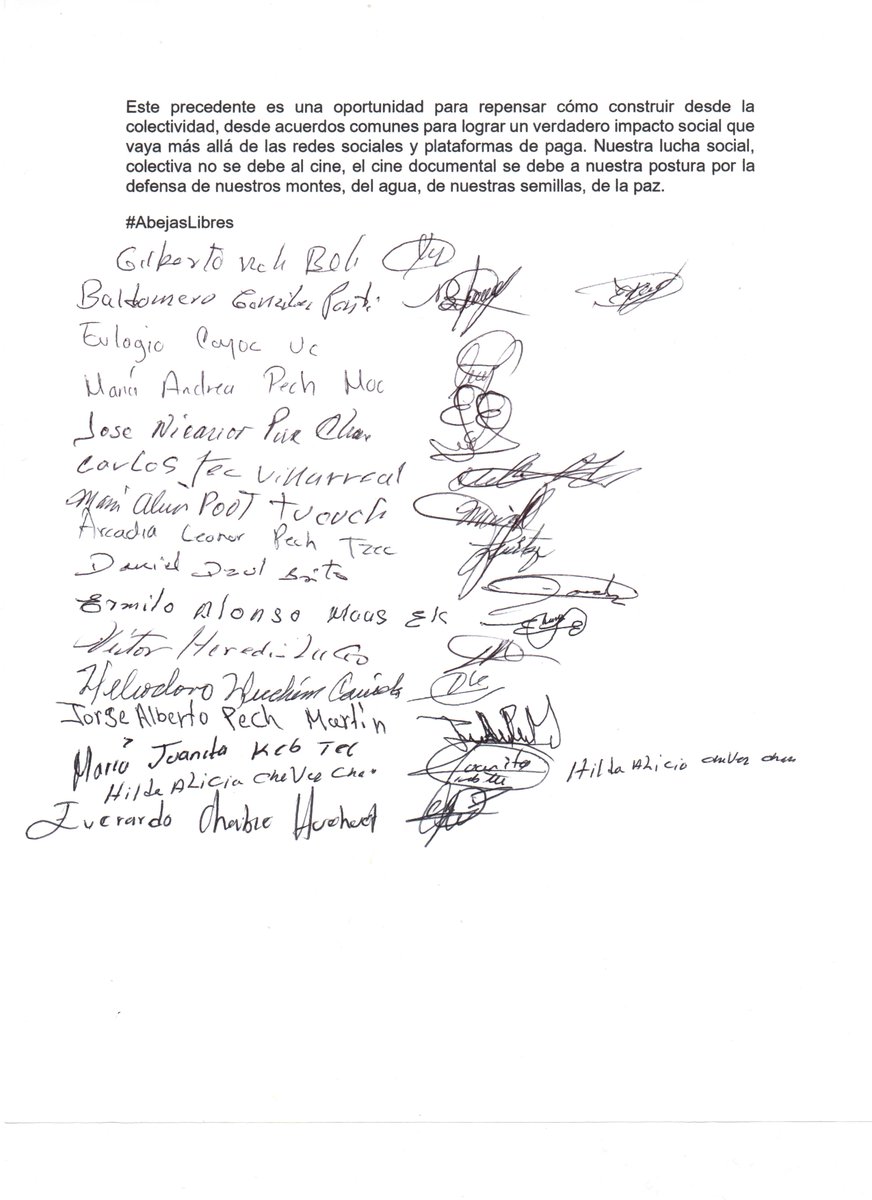 Este precedente es una oportunidad para repensar cómo construir desde la
colectividad, desde acuerdos comunes para lograr un verdadero impacto social que
vaya más allá de las redes sociales y plataformas de paga. Nuestra lucha social,
colectiva no se debe al cine, el cine documental se debe a nuestra postura por la
defensa de nuestros montes, del agua, de nuestras semillas, de la paz.
#AbejasLibres
Gilberto
Baldomero González
Eulogio Cayoc Uc
María Andrea Pech Moo
Jose Nicanor
Carlos Tec Villarreal
Poot
Arcadia Leonor Pech Tzec
Daniel Dzul
Ermilo Alonso Moos EK
Heliodoro
Jorge Alberto Pech Martin
María Juanita Keb Tec
Juanita
Hilda ALicia chevez chan Hilda ALicio chevez chan
Everardo